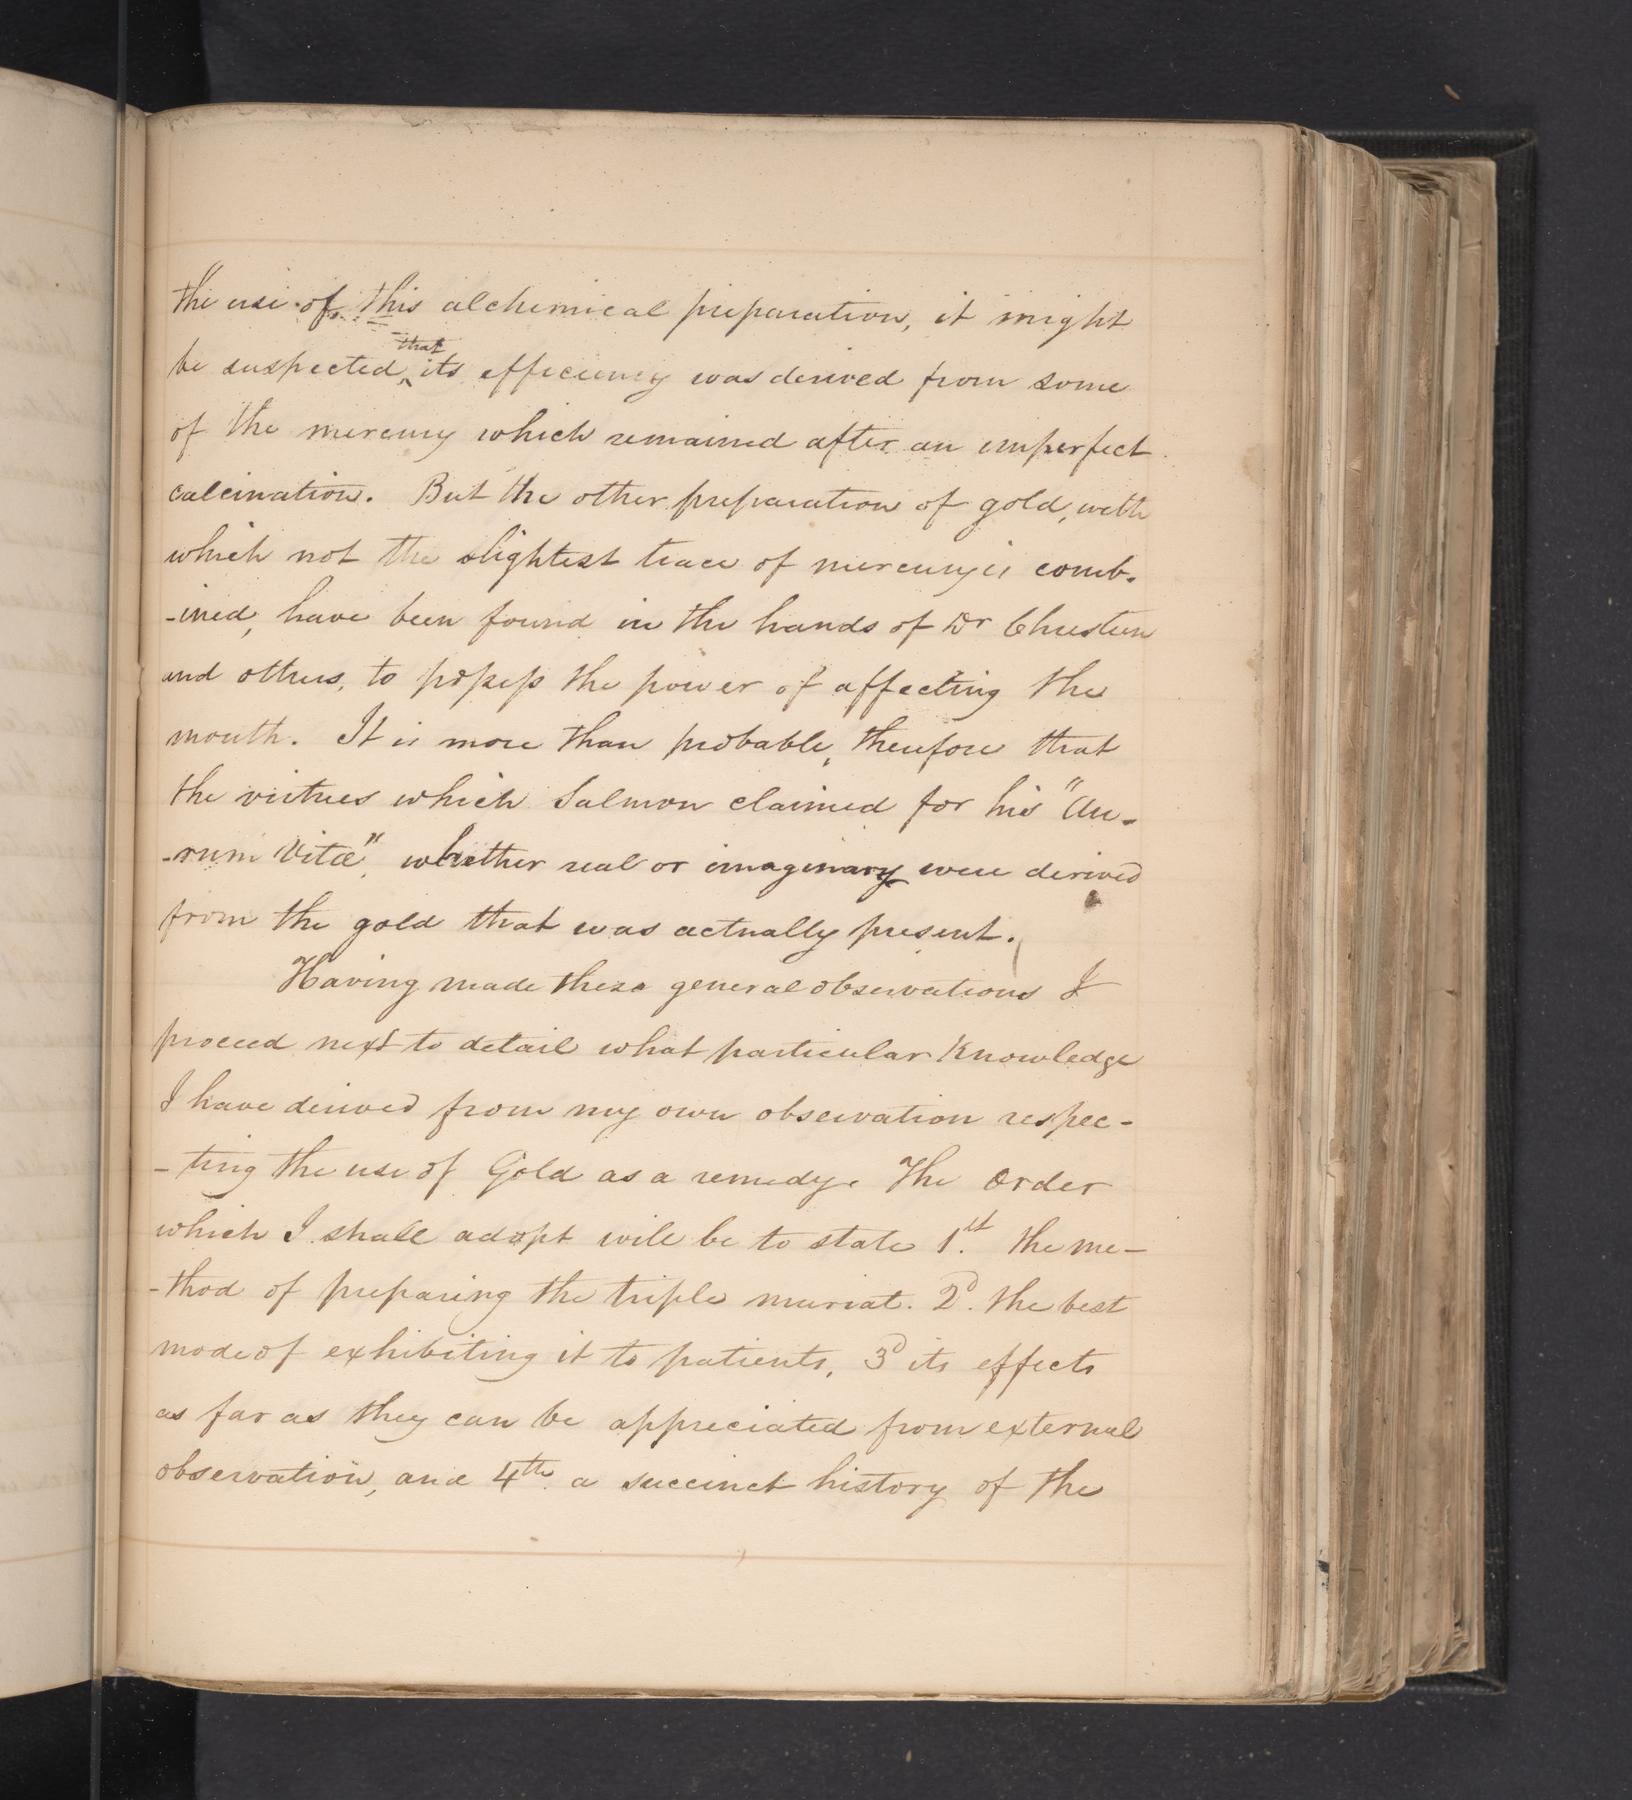 the use of this alchemical preparation, it might
that
be suspected, its efficiency was derived from some
of the mercury which remained after an imperfect
calcination. But the other preparation of gold, with
which not the slightest trace of mercury is comb-
-ined, have been found in the hands of Dr Chrestien
and others, to possess the power of affecting the
mouth. It is more than probable, therefore that
the virtues which Salmon claimed for his "Au-
-rum Vitæ", whether real or imaginary were derived
from the gold that was actually present.
Having made these general observations I
proceed next to detail what particular Knowledge
I have derived from my own observation respec-
-ting the use of Gold as a remedy. The order
which I shall adopt will be to state 1st. the me-
-thod of preparing the triple muriat. 2d. the best
mode of exhibiting it to patients, 3d its effects
as far as they can be appreciated from external
observation, and 4th a succinct history of the